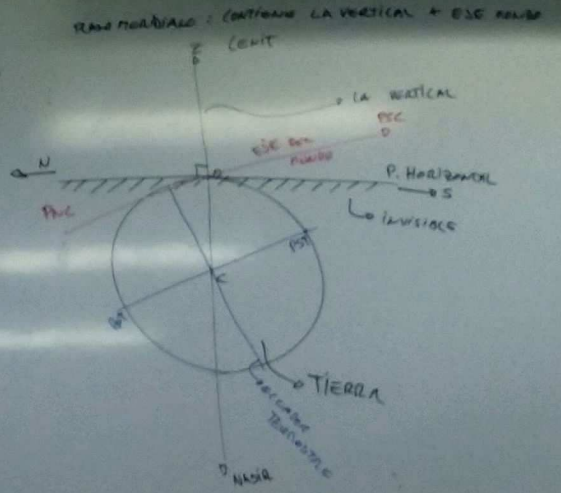 PLANO MERIDIANO : CONTIENE LA VERTICAL + EJE MUNDO
Z
CENIT
LA VERTICAL
PSC
EJE DEL
MUNDO
N
P. HORIZONTAL
S
PNC
INVISIBLE
PST
C
TIERRA
ECUADOR
TERRESTRE
NADIR